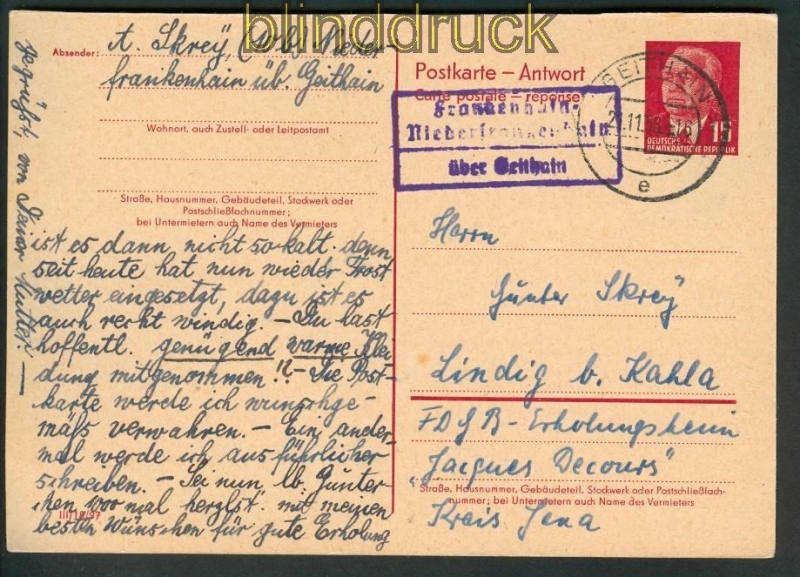 blinddruck
Absender: A. Skrey, (10b) Nieder-
frankenhain üb. Geithain
Wohnort, auch Zustell- oder Leitpostamt
Straße, Hausnummer, Gebäudeteil, Stockwerk oder
Postschließfachnummer;
bei Untermietern auch Name des Vermieters
ist es dann nicht so kalt. denn
seit heute hat nun wieder Frost
wetter eingesetzt, dazu ist es
auch recht windig. – Du hast
hoffentl. genügend warme Klei
dung mitgenommen!? – Die Post-
karte werde ich wunschge-
mäß verwahren. – Ein ander-
mal werde ich ausführlicher
schreiben. – Sei nun, lb. Günter
chen von mal herzlst. mit meinen
besten Wünschen für gute Erholung
gegrüßt, von Deiner Mutter. –
III/18/97
Postkarte – Antwort
Carte postale – réponse
Frankenhain-
Niederfrankenhain
über Geithain
GEITHAIN
e
15
DEUTSCHE
DEMOKRATISCHE REPUBLIK
Herrn
Günter Skrey
Lindig b. Kahla
FDGB-Erholungsheim
„Jacques Decours"
Straße, Hausnummer, Gebäudeteil, Stockwerk oder Postschließfach-
nummer; bei Untermietern auch Name des Vermieters
Kreis Jena